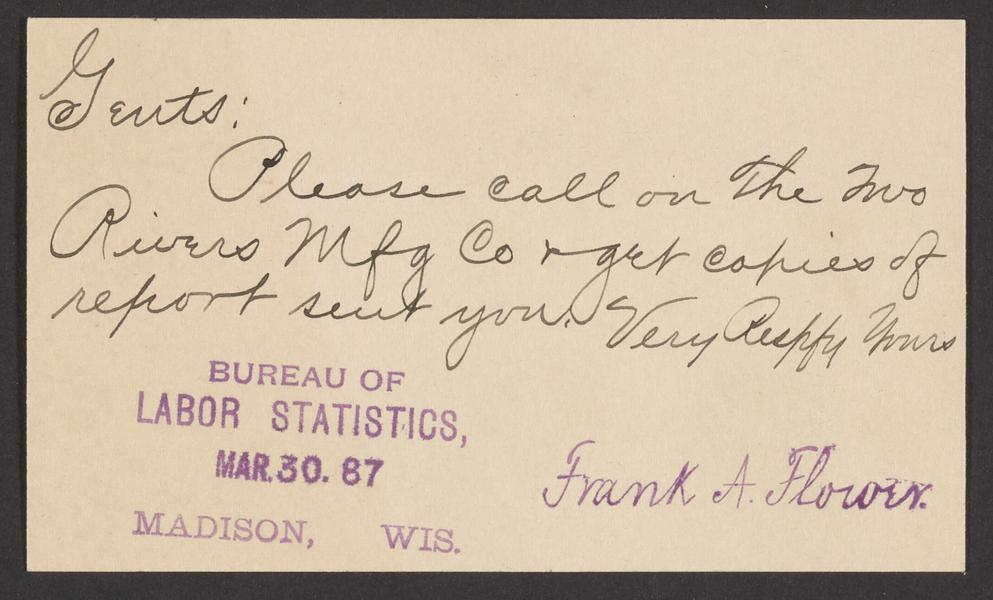 Gents:
Please call on The Two
Rivers Mfg Co & get copies of
report sent you. Very Respfy Yours
BUREAU OF
LABOR STATISTICS,
MAR. 30. 87
MADISON, WIS.
Frank A. Flower.